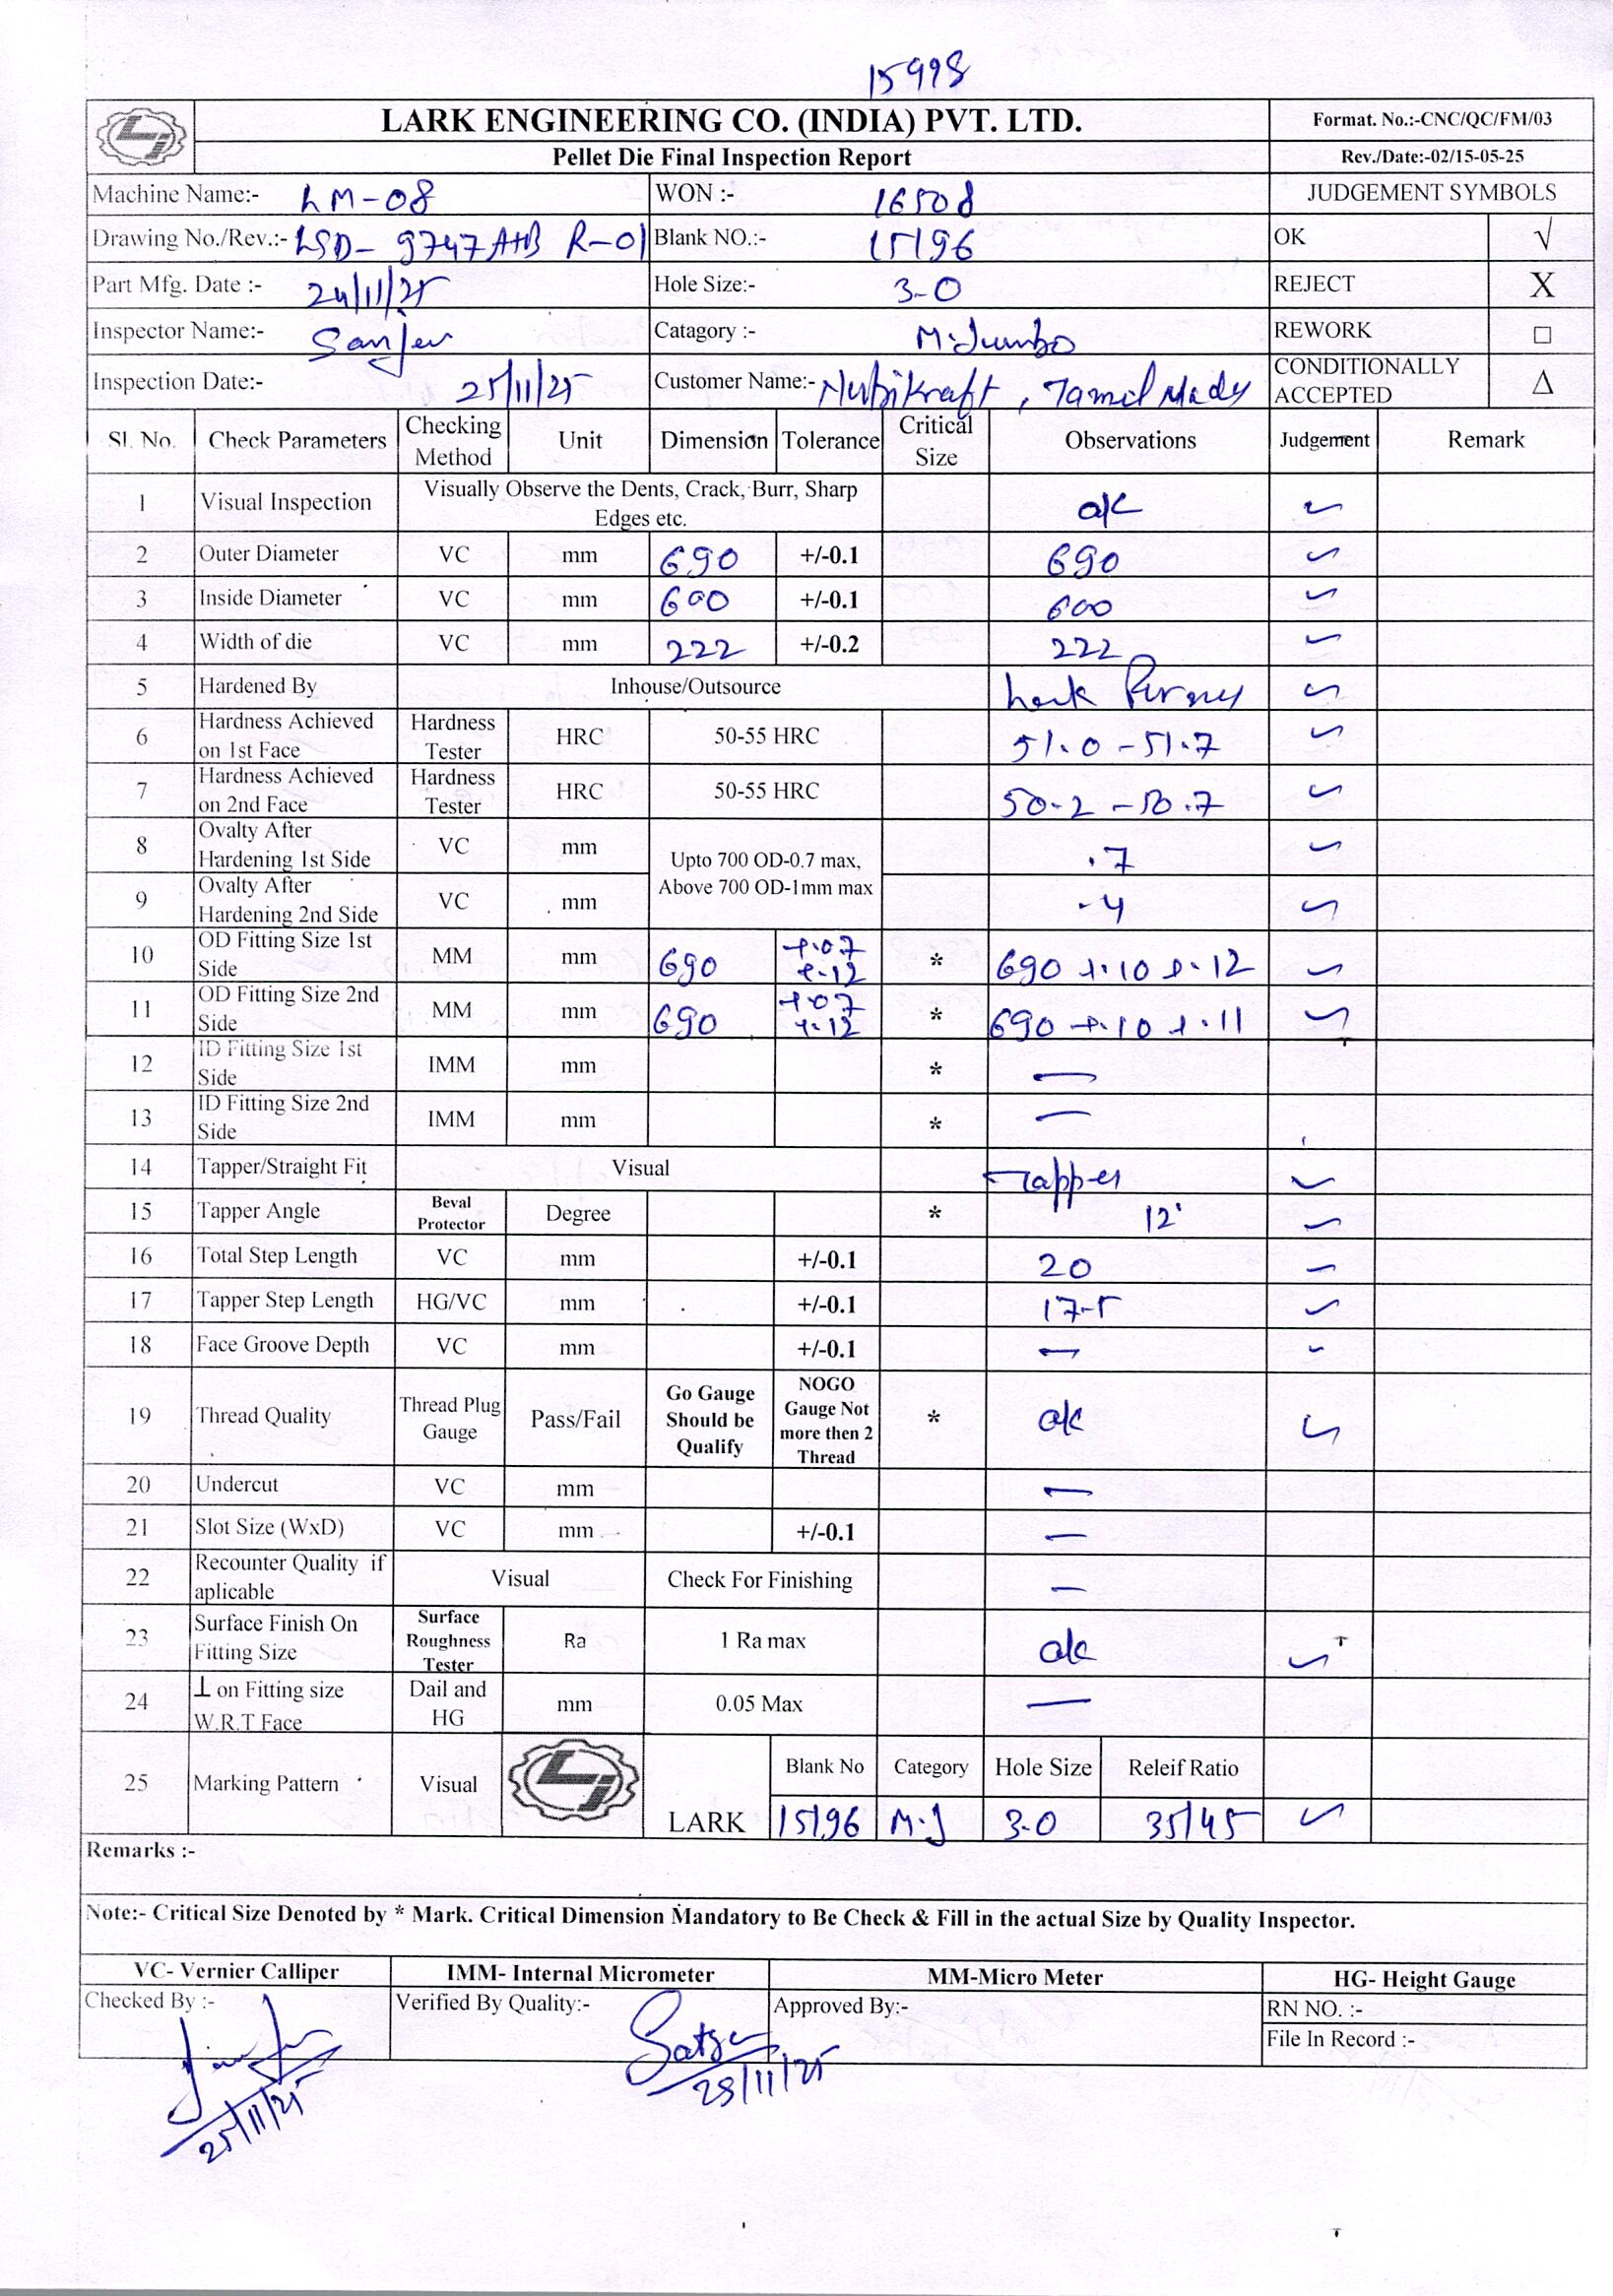 15998
LARK ENGINEERING CO. (INDIA) PVT. LTD.
Format. No.:-CNC/QC/FM/03
Pellet Die Final Inspection Report
Rev./Date:-02/15-05-25
Machine Name:- LM-08 WON :- 16508 JUDGEMENT SYMBOLS
Drawing No./Rev.:- LSD-9747A+B R-01 Blank NO.:- 15196 OK √
Part Mfg. Date :- 24/11/25 Hole Size:- 3-0 REJECT X
Inspector Name:- Sanjeev Catagory :- M.Jumbo REWORK □
Inspection Date:- 25/11/25 Customer Name:- , Tamil CONDITIONALLY ACCEPTED Δ
Sl. No. Check Parameters Checking Method Unit Dimension Tolerance Critical Size Observations Judgement Remark
1 Visual Inspection Visually Observe the Dents, Crack, Burr, Sharp Edges etc. ok ✓
2 Outer Diameter VC mm 690 +/-0.1 690 ✓
3 Inside Diameter VC mm 600 +/-0.1 600 ✓
4 Width of die VC mm 222 +/-0.2 222 ✓
5 Hardened By Inhouse/Outsource Lark ✓
6 Hardness Achieved on 1st Face Hardness Tester HRC 50-55 HRC 51.0 - 51.7 ✓
7 Hardness Achieved on 2nd Face Hardness Tester HRC 50-55 HRC 50.2 - 50.7 ✓
8 Ovalty After Hardening 1st Side VC mm Upto 700 OD-0.7 max, Above 700 OD-1mm max .7 ✓
9 Ovalty After Hardening 2nd Side VC mm .4 ✓
10 OD Fitting Size 1st Side MM mm 690 +.07 +.12 * 690 +.10 +.12 ✓
11 OD Fitting Size 2nd Side MM mm 690 +.07 +.12 * 690 +.10 +.11 ✓
12 ID Fitting Size 1st Side IMM mm * —
13 ID Fitting Size 2nd Side IMM mm * —
14 Tapper/Straight Fit Visual Tapper ✓
15 Tapper Angle Beval Protector Degree * 12' ✓
16 Total Step Length VC mm +/-0.1 20 ✓
17 Tapper Step Length HG/VC mm +/-0.1 17-5 ✓
18 Face Groove Depth VC mm +/-0.1 — -
19 Thread Quality Thread Plug Gauge Pass/Fail Go Gauge Should be Qualify NOGO Gauge Not more then 2 Thread * ok ✓
20 Undercut VC mm —
21 Slot Size (WxD) VC mm +/-0.1 —
22 Recounter Quality if aplicable Visual Check For Finishing —
23 Surface Finish On Fitting Size Surface Roughness Tester Ra 1 Ra max ok ✓
24 ⊥ on Fitting size W.R.T Face Dail and HG mm 0.05 Max —
25 Marking Pattern Visual LARK Blank No Category Hole Size Releif Ratio
15196 M.J 3-0 35/45 ✓
Remarks :-
Note:- Critical Size Denoted by * Mark. Critical Dimension Mandatory to Be Check & Fill in the actual Size by Quality Inspector.
VC- Vernier Calliper IMM- Internal Micrometer MM-Micro Meter HG- Height Gauge
Checked By :- Verified By Quality:- Approved By:- RN NO. :-
File In Record :-
25/11/25